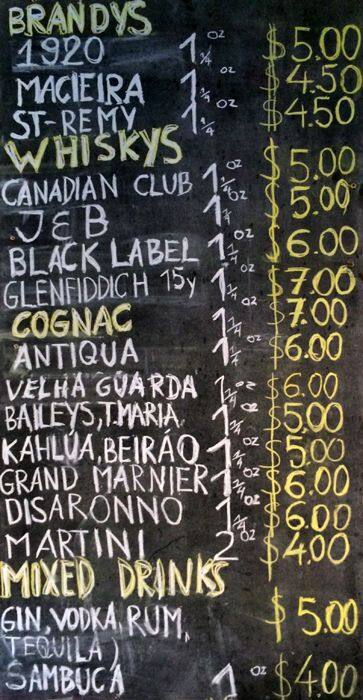 BRANDYS
1920 1 1/4 oz $5.00
MACIEIRA 1 1/4 oz $4.50
ST-REMY 1 1/4 $4.50
WHISKYS
CANADIAN CLUB 1 1/4 oz $5.00
J&B 1 1/4 oz $5.00
BLACK LABEL 1 1/4 oz $6.00
GLENFIDDICH 15y 1 1/4 oz $7.00
COGNAC $7.00
ANTIQUA 1 1/4 oz $6.00
VELHA GUARDA 1 1/4 oz $6.00
BAILEYS, T.MARIA, 1 1/4 oz $5.00
KAHLUA, BEIRÁO 1 1/4 oz $5.00
GRAND MARNIER 1 1/4 oz $6.00
DISARONNO 1 1/4 oz $6.00
MARTINI 2 oz $4.00
MIXED DRINKS
GIN, VODKA, RUM, $5.00
TEQUILA)
SAMBUCA 1 oz $4.00